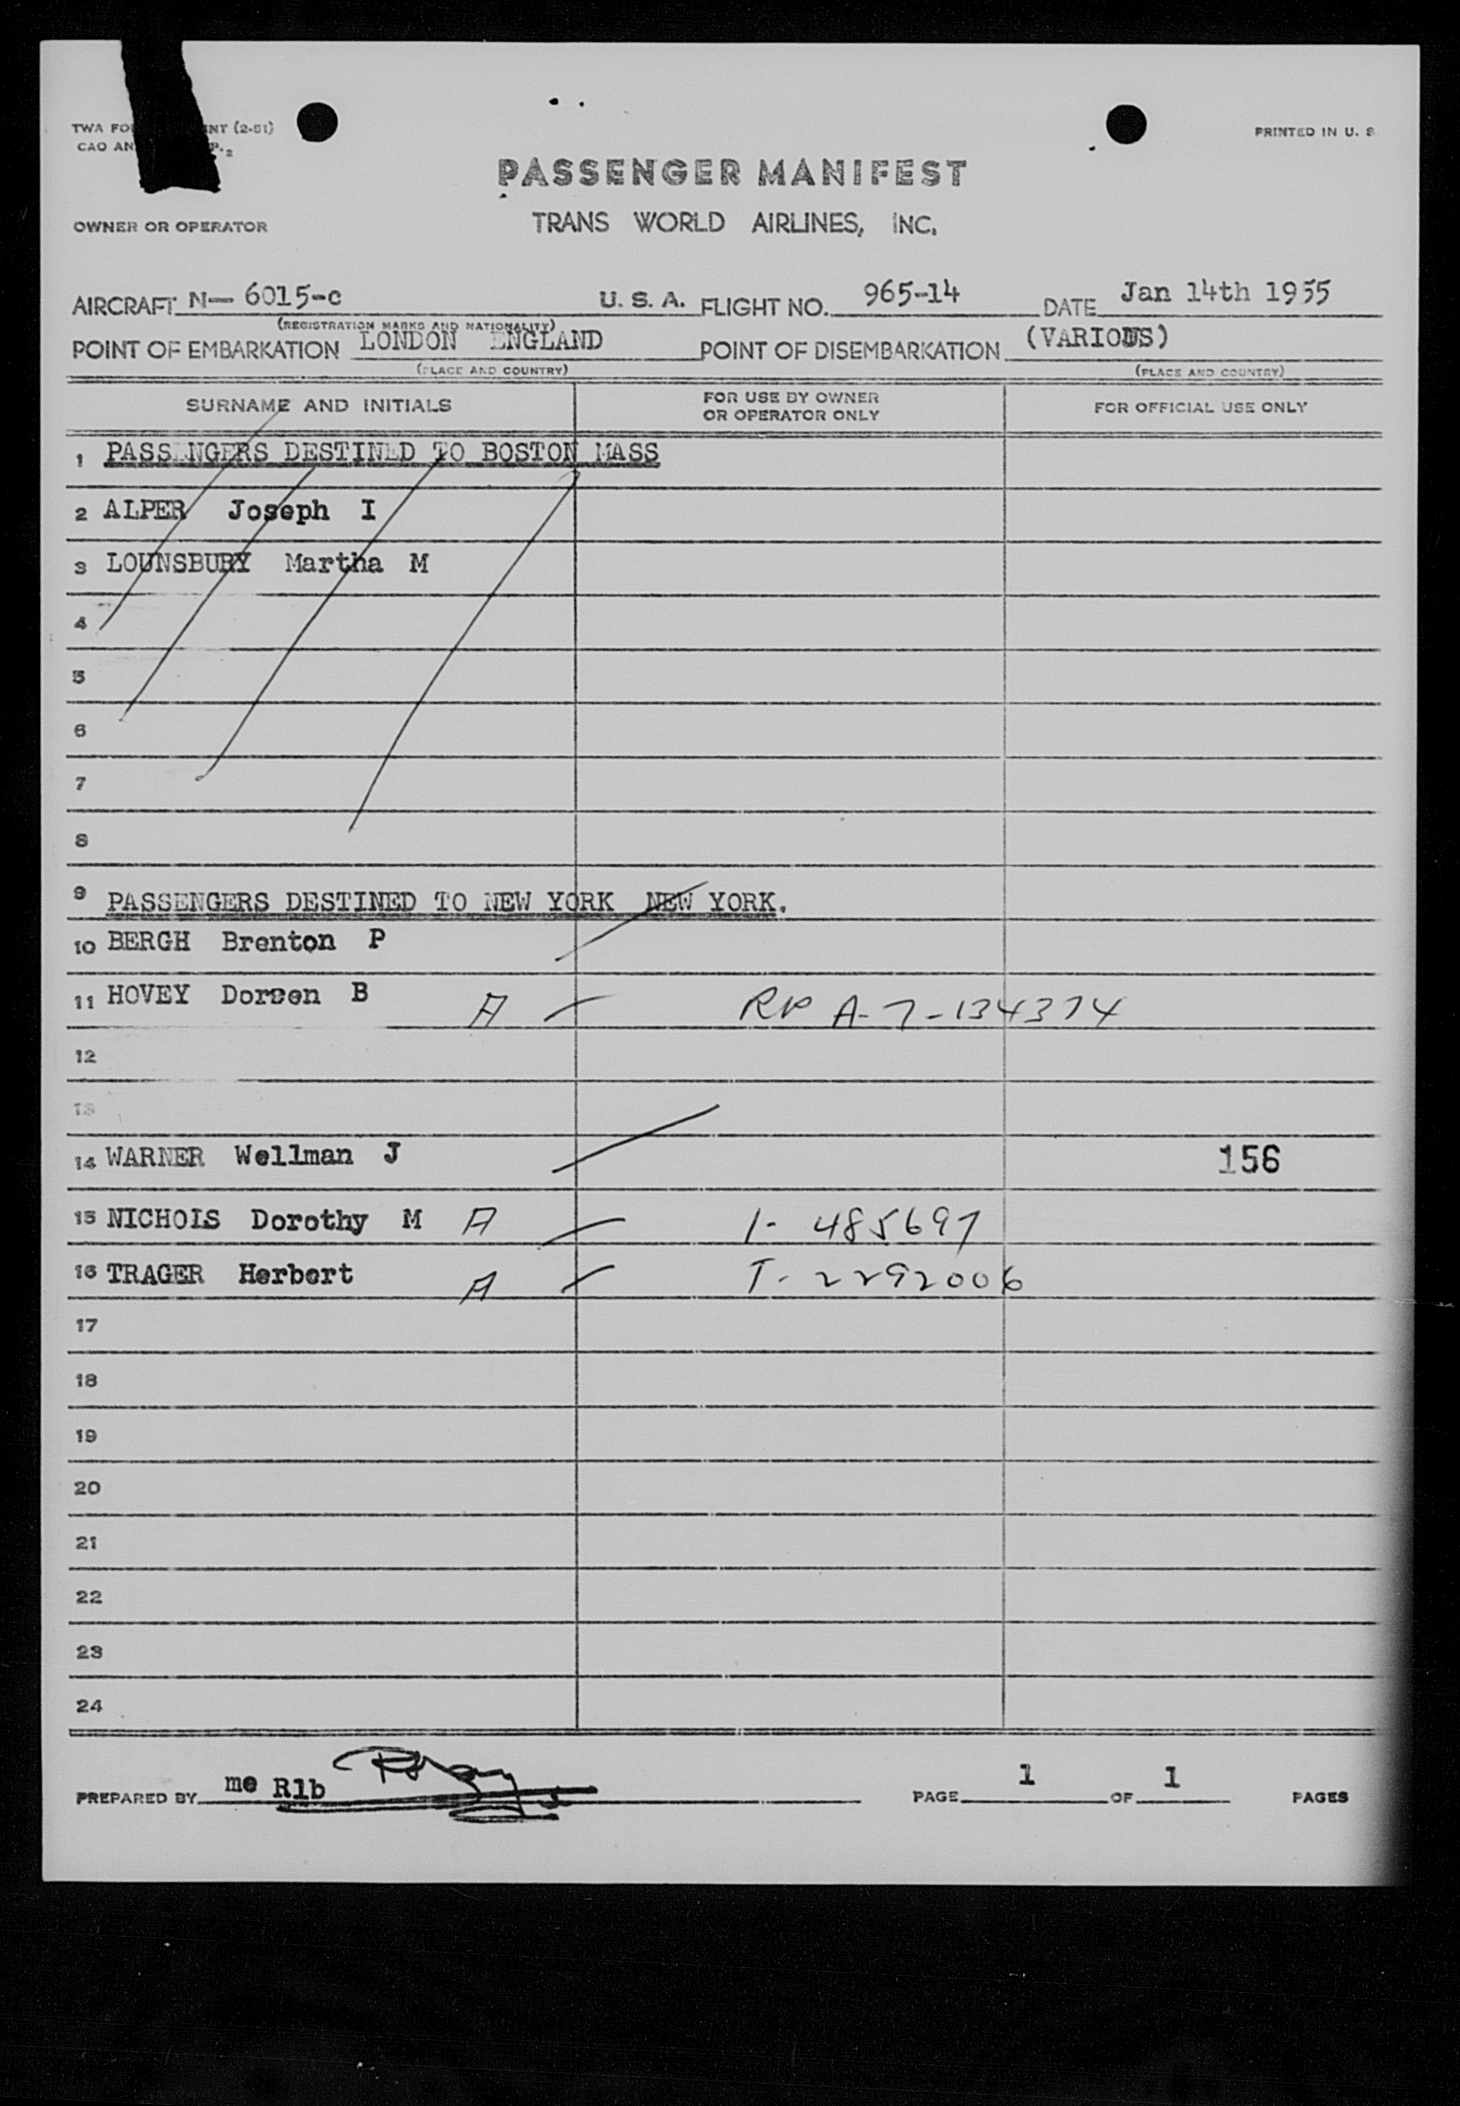 TWA FO NT (2-51) PRINTED IN U. S
CAO AN P.2
PASSENGER MANIFEST
OWNER OR OPERATOR TRANS WORLD AIRLINES, INC.
AIRCRAFT N— 6015-c U. S. A. FLIGHT NO. 965-14 DATE Jan 14th 1955
(REGISTRATION MARKS AND NATIONALITY)
POINT OF EMBARKATION LONDON ENGLAND POINT OF DISEMBARKATION (VARIOUS)
(PLACE AND COUNTRY) (PLACE AND COUNTRY)
SURNAME AND INITIALS FOR USE BY OWNER OR OPERATOR ONLY FOR OFFICIAL USE ONLY
1 PASSENGERS DESTINED TO BOSTON MASS
2 ALPER Joseph I
3 LOUNSBURY Martha M
4
5
6
7
8
9 PASSENGERS DESTINED TO NEW YORK NEW YORK.
10 BERGH Brenton P
11 HOVEY Doreen B A RP A-7-134374
12
13
14 WARNER Wellman J 156
15 NICHOLS Dorothy M A 1- 485697
16 TRAGER Herbert A T- 2292006
17
18
19
20
21
22
23
24
PREPARED BY me Rlb PAGE 1 OF 1 PAGES